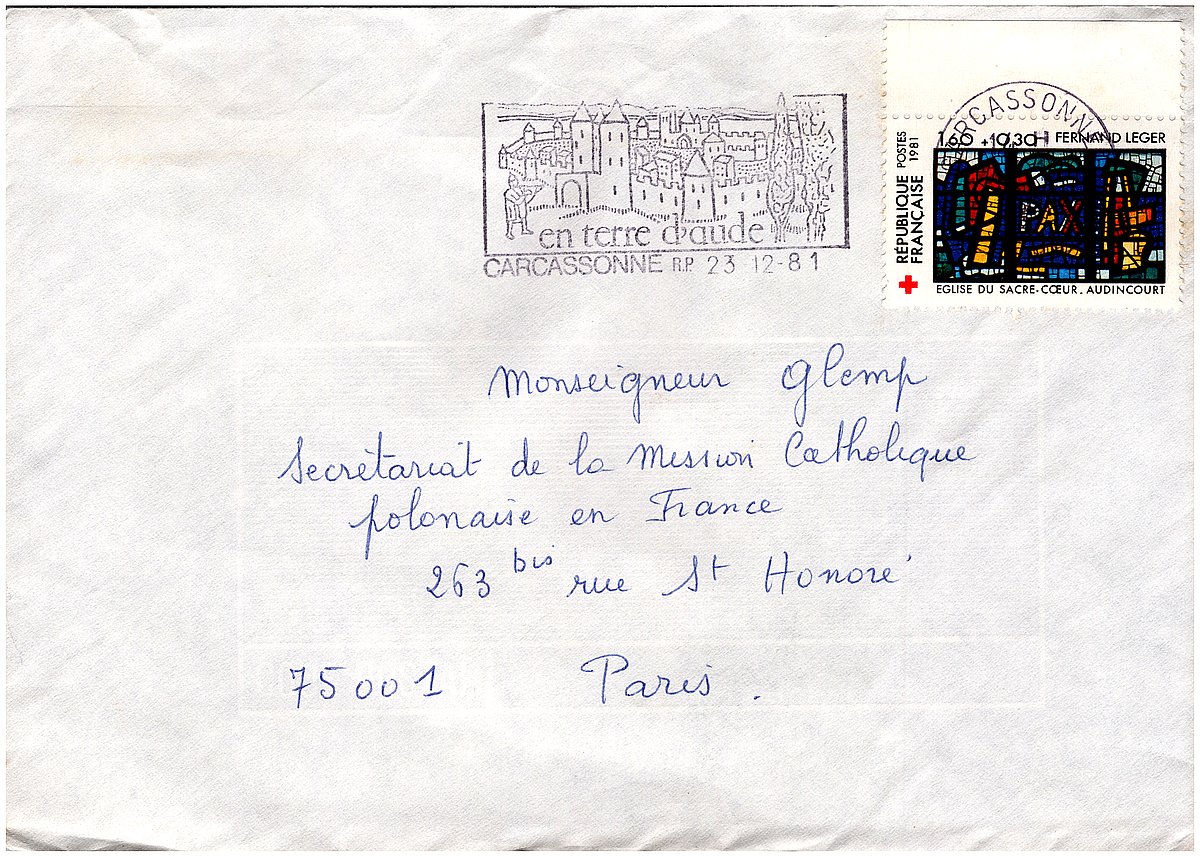 en terre d'aude
CARCASSONNE R.P. 23 12-81
CARCASSONNE
RÉPUBLIQUE FRANÇAISE
POSTES 1981
1,60 +0,30 FERNAND LEGER
PAX
EGLISE DU SACRE-CŒUR. AUDINCOURT
Monseigneur Glemp
Secrétariat de la Mission Catholique
polonaise en France
263 bis rue St Honoré
75001 Paris.